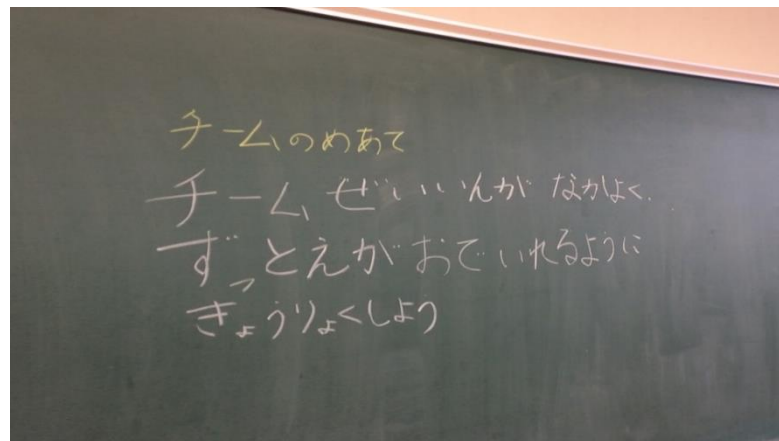 チームのめあて
チームぜいいんが なかよく、
ずっとえがおでいれるように
きょうりょくしよう